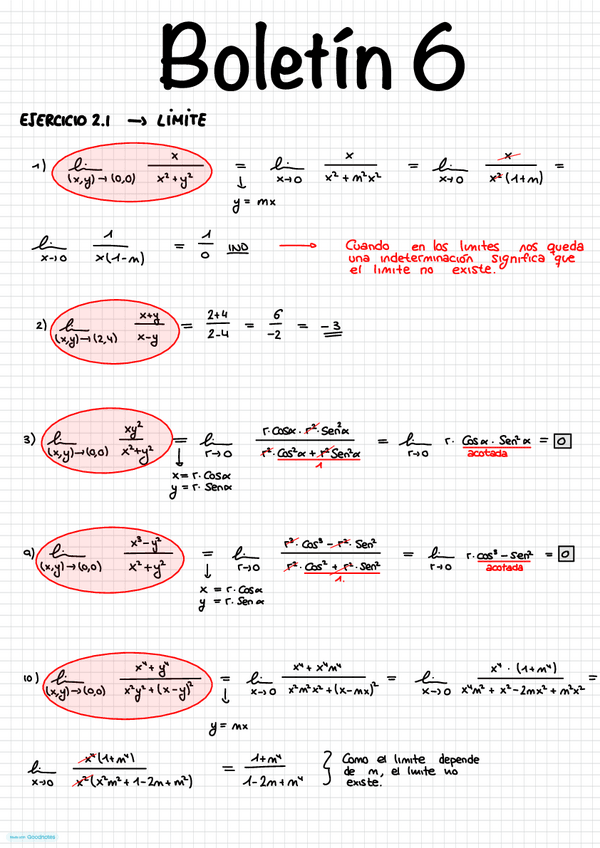 Boletín 6
EJERCICIO 2.1 → LÍMITE
1) lim (x,y)→(0,0) x / (x² + y²) = lim x→0 x / (x² + m²x²) = lim x→0 x / (x² (1+m)) =
↓ y = mx
lim x→0 1 / (x(1-m)) = 1/0 IND → Cuando en los limites nos queda
una indeterminación significa que
el limite no existe.
2) lim (x,y)→(2,4) (x+y) / (x-y) = (2+4) / (2-4) = 6 / -2 = -3
3) lim (x,y)→(0,0) xy² / (x²+y²) = lim r→0 (r·Cosα · r²·Sen²α) / (r²·Cos²α + r²Sen²α) = lim r→0 r · Cosα · Sen²α = 0
1
acotada
↓
x = r·Cosα
y = r·Senα
9) lim (x,y)→(0,0) (x³-y²) / (x²+y²) = lim r→0 (r³·Cos³ - r²·Sen²) / (r²·Cos² + r²·Sen²) = lim r→0 r·cos³ - Sen² = 0
1.
acotada
↓
x = r·Cosα
y = r·Senα
10) lim (x,y)→(0,0) (x⁴ + y⁴) / (x²y² + (x-y)²) = lim x→0 (x⁴ + x⁴m⁴) / (x²m²x² + (x-mx)²) = lim x→0 (x⁴ · (1+m⁴)) / (x⁴m² + x² - 2mx² + m²x²) =
↓
y = mx
lim x→0 x⁴(1+m⁴) / (x²(x²m² + 1 - 2m + m²)) = (1+m⁴) / (1-2m+m⁴) } Como el limite depende
de m, el limite no
existe.
Made with Goodnotes